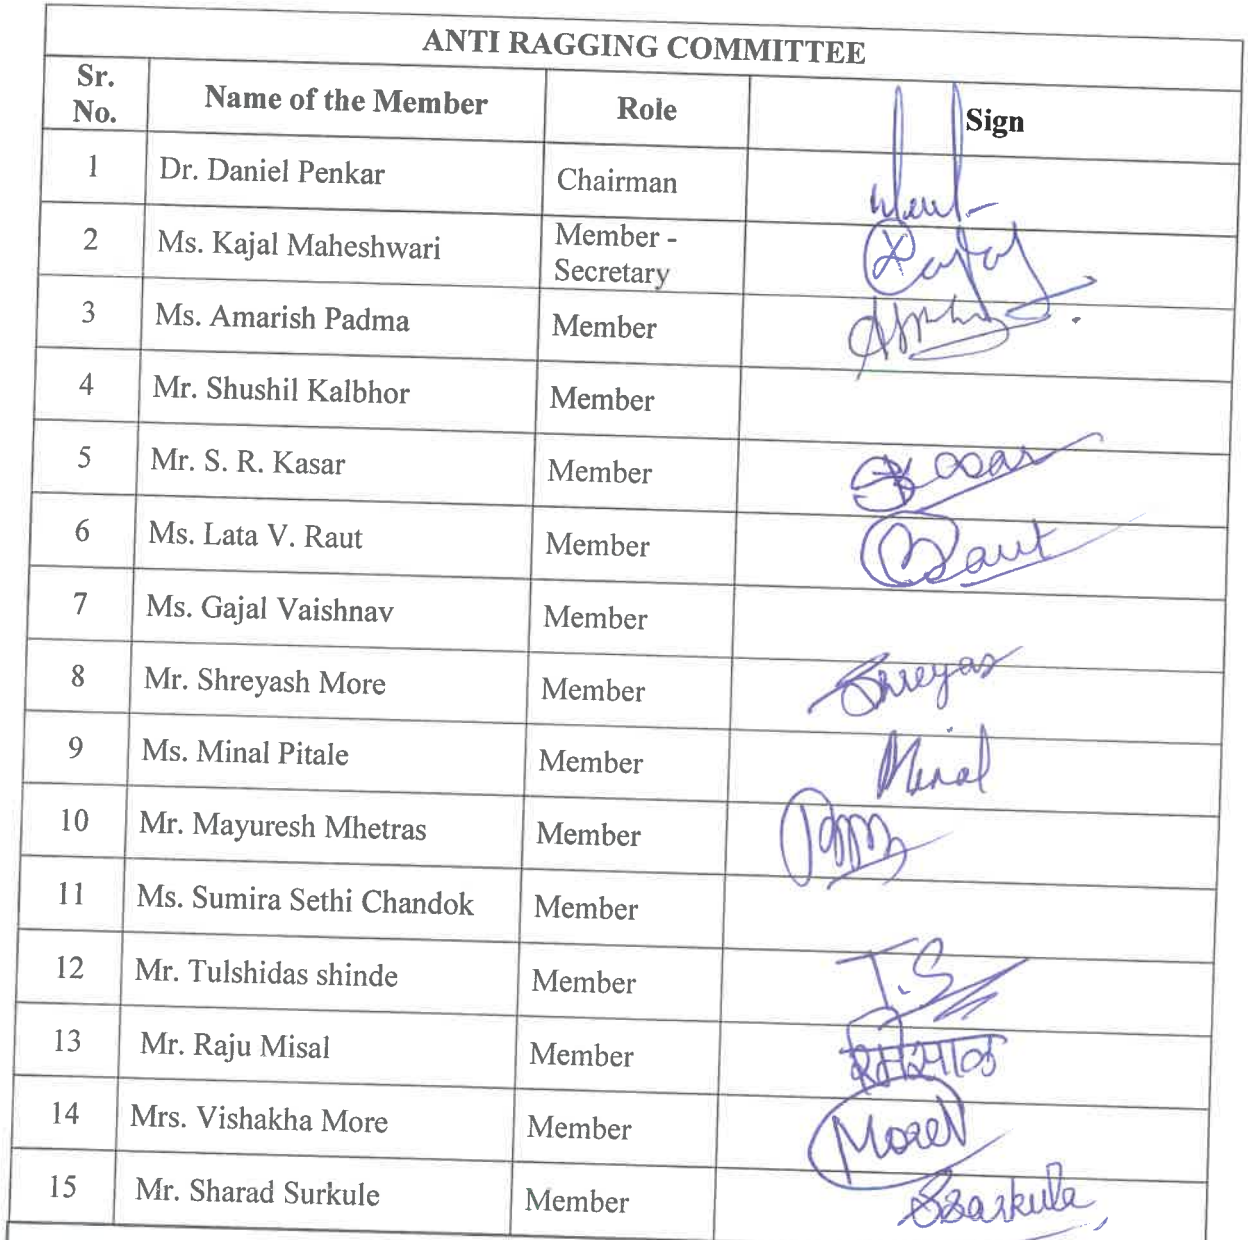 ANTI RAGGING COMMITTEE
Sr. No. Name of the Member Role Sign
1 Dr. Daniel Penkar Chairman
2 Ms. Kajal Maheshwari Member - Secretary Kajal
3 Ms. Amarish Padma Member
4 Mr. Shushil Kalbhor Member
5 Mr. S. R. Kasar Member
6 Ms. Lata V. Raut Member Raut
7 Ms. Gajal Vaishnav Member
8 Mr. Shreyash More Member Shreyas
9 Ms. Minal Pitale Member Minal
10 Mr. Mayuresh Mhetras Member
11 Ms. Sumira Sethi Chandok Member
12 Mr. Tulshidas shinde Member T.S
13 Mr. Raju Misal Member
14 Mrs. Vishakha More Member
15 Mr. Sharad Surkule Member